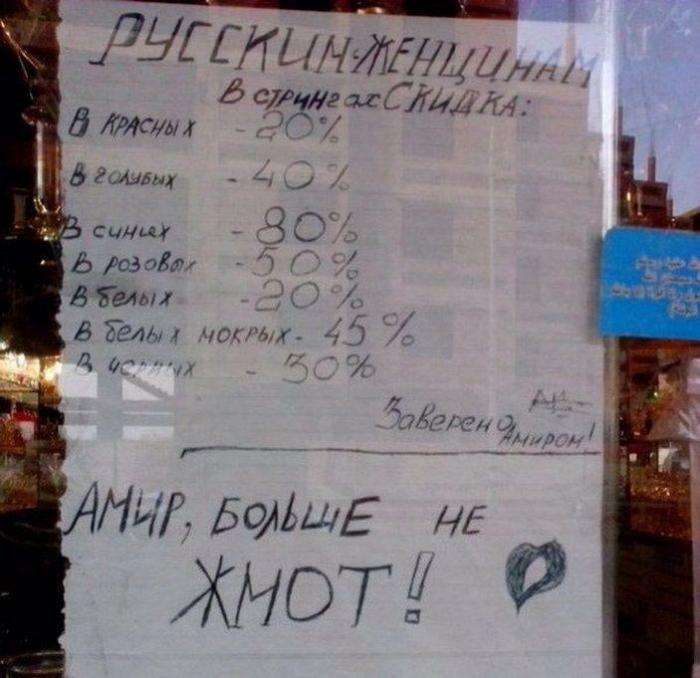 РУССКИМ ЖЕНЩИНАМ
В СТРИНГАХ СКИДКА:
В КРАСНЫХ - 20%
В ГОЛУБЫХ - 40%
В СИНИХ - 80%
В РОЗОВЫХ - 50%
В БЕЛЫХ - 20%
В БЕЛЫХ МОКРЫХ - 45%
В ЧЕРНЫХ - 30%
Заверено
АМИРОМ!
АМИР, БОЛЬШЕ НЕ
ЖМОТ!